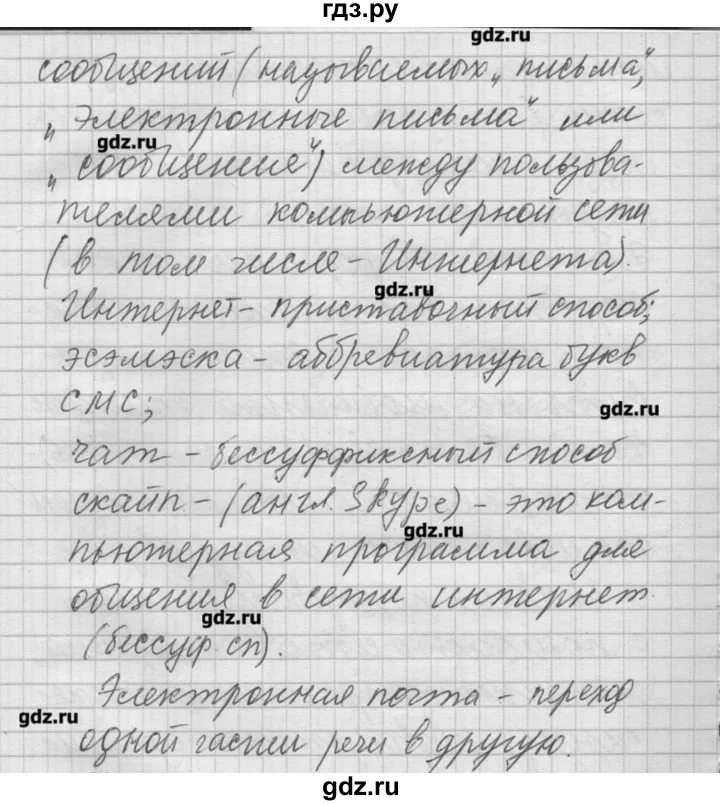 гдз.ру
gdz.ru
сообщений (называемых „письма",
„электронные письма" или
gdz.ru
„сообщения") между пользова-
телями компьютерной сети
(в том числе – Интернета).
gdz.ru
Интернет – приставочный способ;
эсэмэска – аббревиатура букв
СМС;
gdz.ru
чат – бессуффиксный способ
скайп – (англ. Skype) – это ком-
gdz.ru
пьютерная программа для
общения в сети интернет
gdz.ru
(бессуф. сп).
Электронная почта – переход
gdz.ru
одной части речи в другую.
gdz.ru